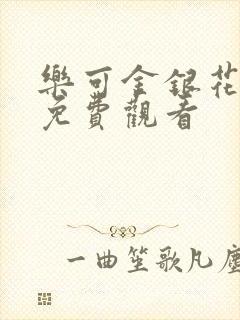 樂可金銀花
免費觀看
一曲笙歌凡塵